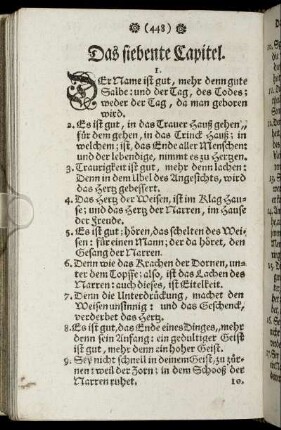 (448)
Das siebente Capitel.
1.
DEr Name ist gut, mehr denn gute
Salbe: und der Tag, des Todes;
weder der Tag, da man geboren
wird.
2. Es ist gut, in das Trauer Hauß gehen,
für dem gehen, in das Trinck Hauß; in
welchem; ist, das Ende aller Menschen:
und der lebendige, nimmt es zu Hertzen.
3. Traurigkeit ist gut, mehr denn lachen:
Denn in dem Ubel des Angesichts, wird
das Hertz gebessert.
4. Das Hertz der Weisen, ist im Klag Hau-
se; und das Hertz der Narren, im Hause
der Freude.
5. Es ist gut: hören, das schelten des Wei-
sen: für einen Mann; der da höret, den
Gesang der Narren.
6. Denn wie das Krachen der Dornen, un-
ter dem Topffe: also, ist das Lachen des
Narren: auch dieses, ist Eitelkeit.
7. Denn die Unterdrückung, machet den
Weisen unsinnig: und das Geschenck,
verderbet das Hertz.
8. Es ist gut, das Ende eines Dinges, mehr
denn sein Anfang: ein gedultiger Geist
ist gut, mehr denn ein hoher Geist.
9. Sey nicht schnell in deinem Geist, zu zür-
nen: weil der Zorn; in dem Schooß der
Narren ruhet. 10.